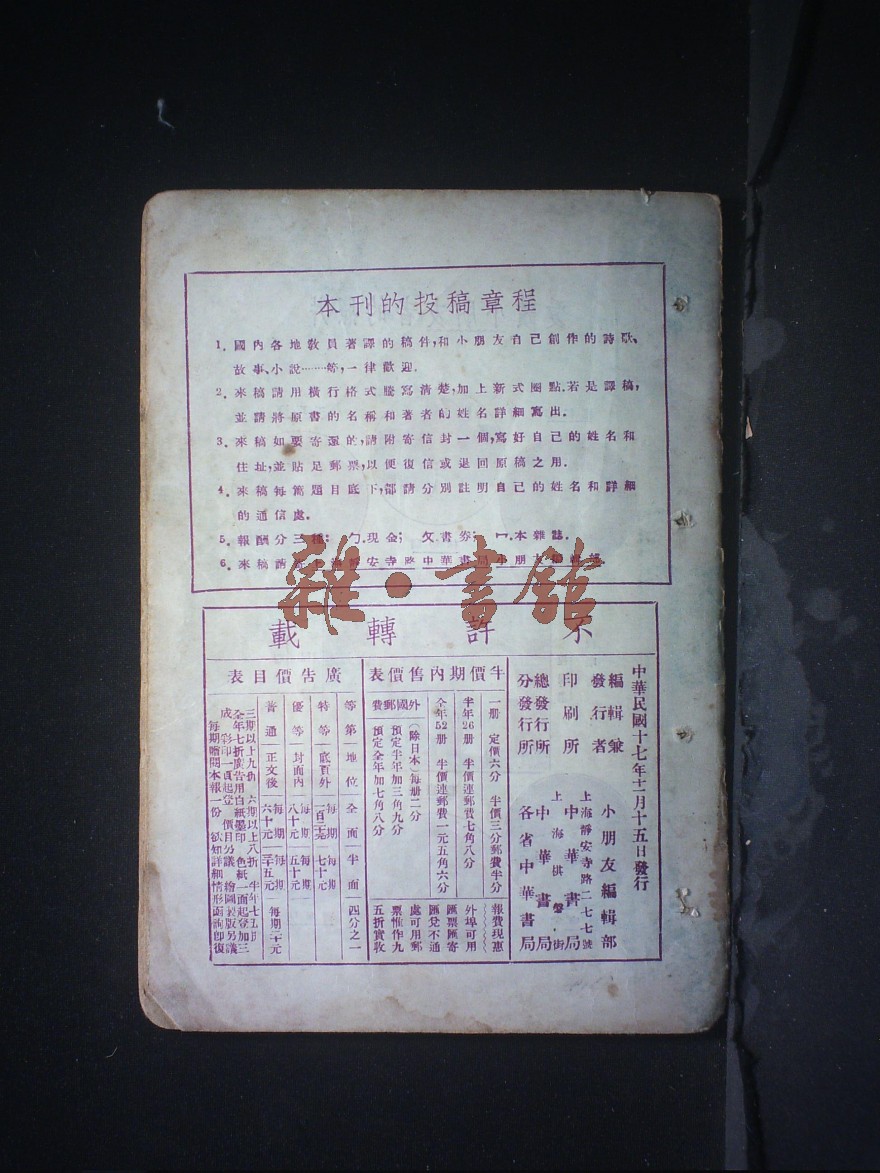 本刊的投稿章程
1. 國內各地敎員著譯的稿件,和小朋友自己創作的詩歌、
故事、小說……等,一律歡迎.
2. 來稿請用橫行格式謄寫淸楚,加上新式圈點.若是譯稿,
並請將原書的名稱和著者的姓名詳細寫出.
3. 來稿如要寄還的,請附寄信封一個,寫好自己的姓名和
住址,並貼足郵票,以便復信或退回原稿之用.
4. 來稿每篇題目底下,都請分別註明自己的姓名和詳細
的通信處.
5. 報酬分三種: ㄅ.現金; ㄆ.書券; ㄇ.本雜誌.
6. 來稿請寄上海靜安寺路中華書局小朋友編輯部.
雜·書館
不許轉載
中華民國十七年十一月十五日發行
編輯兼發行者 小朋友編輯部
印刷所 上海靜安寺路二七七號 中華書局
總發行所 上海棋盤街 中華書局
分發行所 各省中華書局
半價期內售價表
一册 定價六分 半價三分郵費半分
半年26册 半價連郵費七角八分
全年52册 半價連郵費一元五角六分
外國郵費
(除日本)每册二分
預定半年加三角九分
預定全年加七角八分
報費現惠
外埠可用
匯票匯寄
匯兌不通
處可用郵
票惟作九
五折實收
廣告價目表
等第 地位 全面 半面 四分之一
特等 底頁外 每期一百二十元 每期七十元
優等 封面內 每期八十元 每期五十元
普通 正文後 每期六十元 每期三十五元 每期二十元
三期以上九折 六期以上八折 半年七五折
全年七折廣告用白紙墨印 色紙一面起登加三
成 彩印一頁起登 價目另議 繪圖製版另議
每期贈閱本報一份 欲知詳細情形函詢卽復